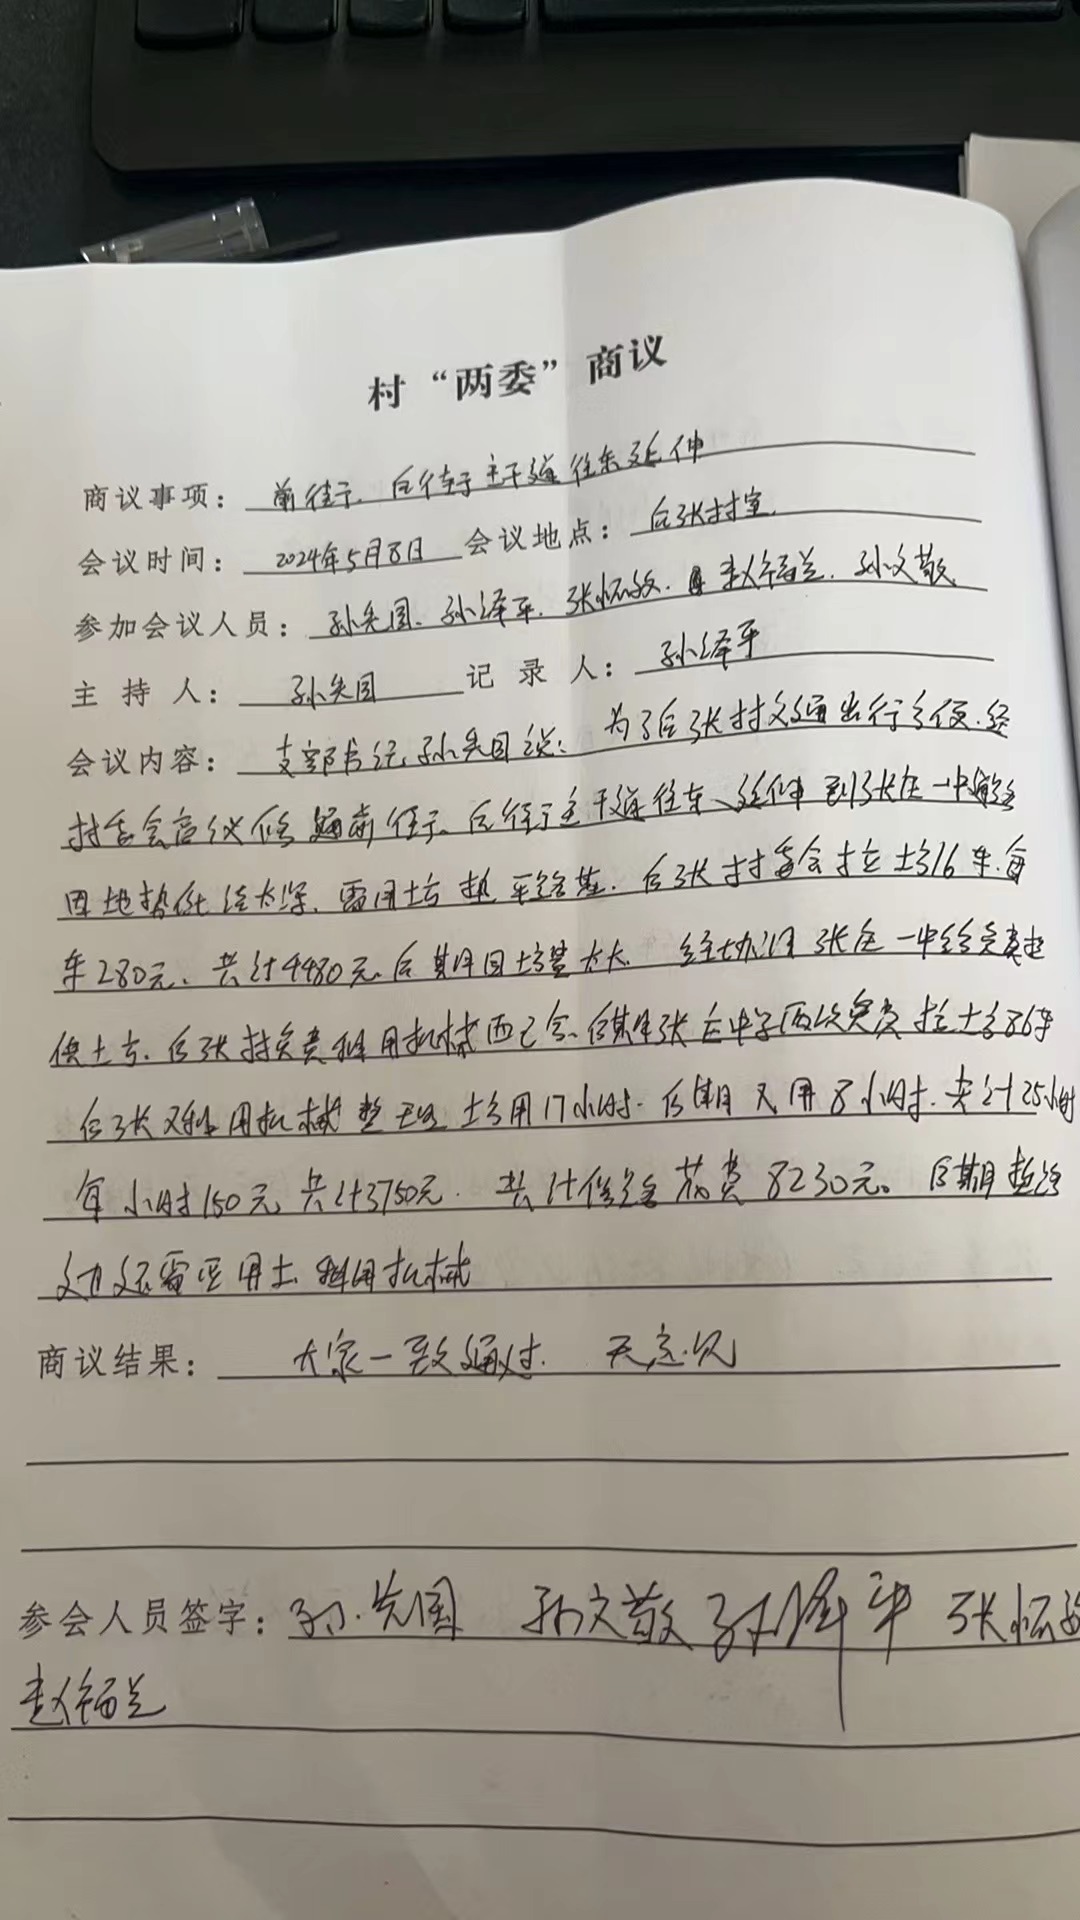 村“两委”商议
商议事项：前街、后街主干道往东延伸
会议时间：2024年5月8日 会议地点：后张村室
参加会议人员：孙先国、孙泽平、张怀敏、赵福兰、孙文敬
主持人：孙先国 记录人：孙泽平
会议内容：支部书记孙先国说：为了后张村交通出行方便，经
村委会商议修通前街、后街主干道往东、延伸到张庄一中路
因地势低洼太深、需用土方垫平路基．后张村村委会拉土方16车．每
车280元、共计4480元．后期因土方量太大．经协调张庄一中免费提
供土方．后张村负责租用机械配合．后期张庄中学两次免费拉土方86车
后张又租用机械整理土方用17小时．后期又用8小时．共计25小时
每小时150元，共计3750元．共计修路花费8230元。后期整路
边还需要用土 租用机械
商议结果：大家一致通过．无意见
参会人员签字：孙先国 孙文敬 孙泽平 张怀敏
赵福兰